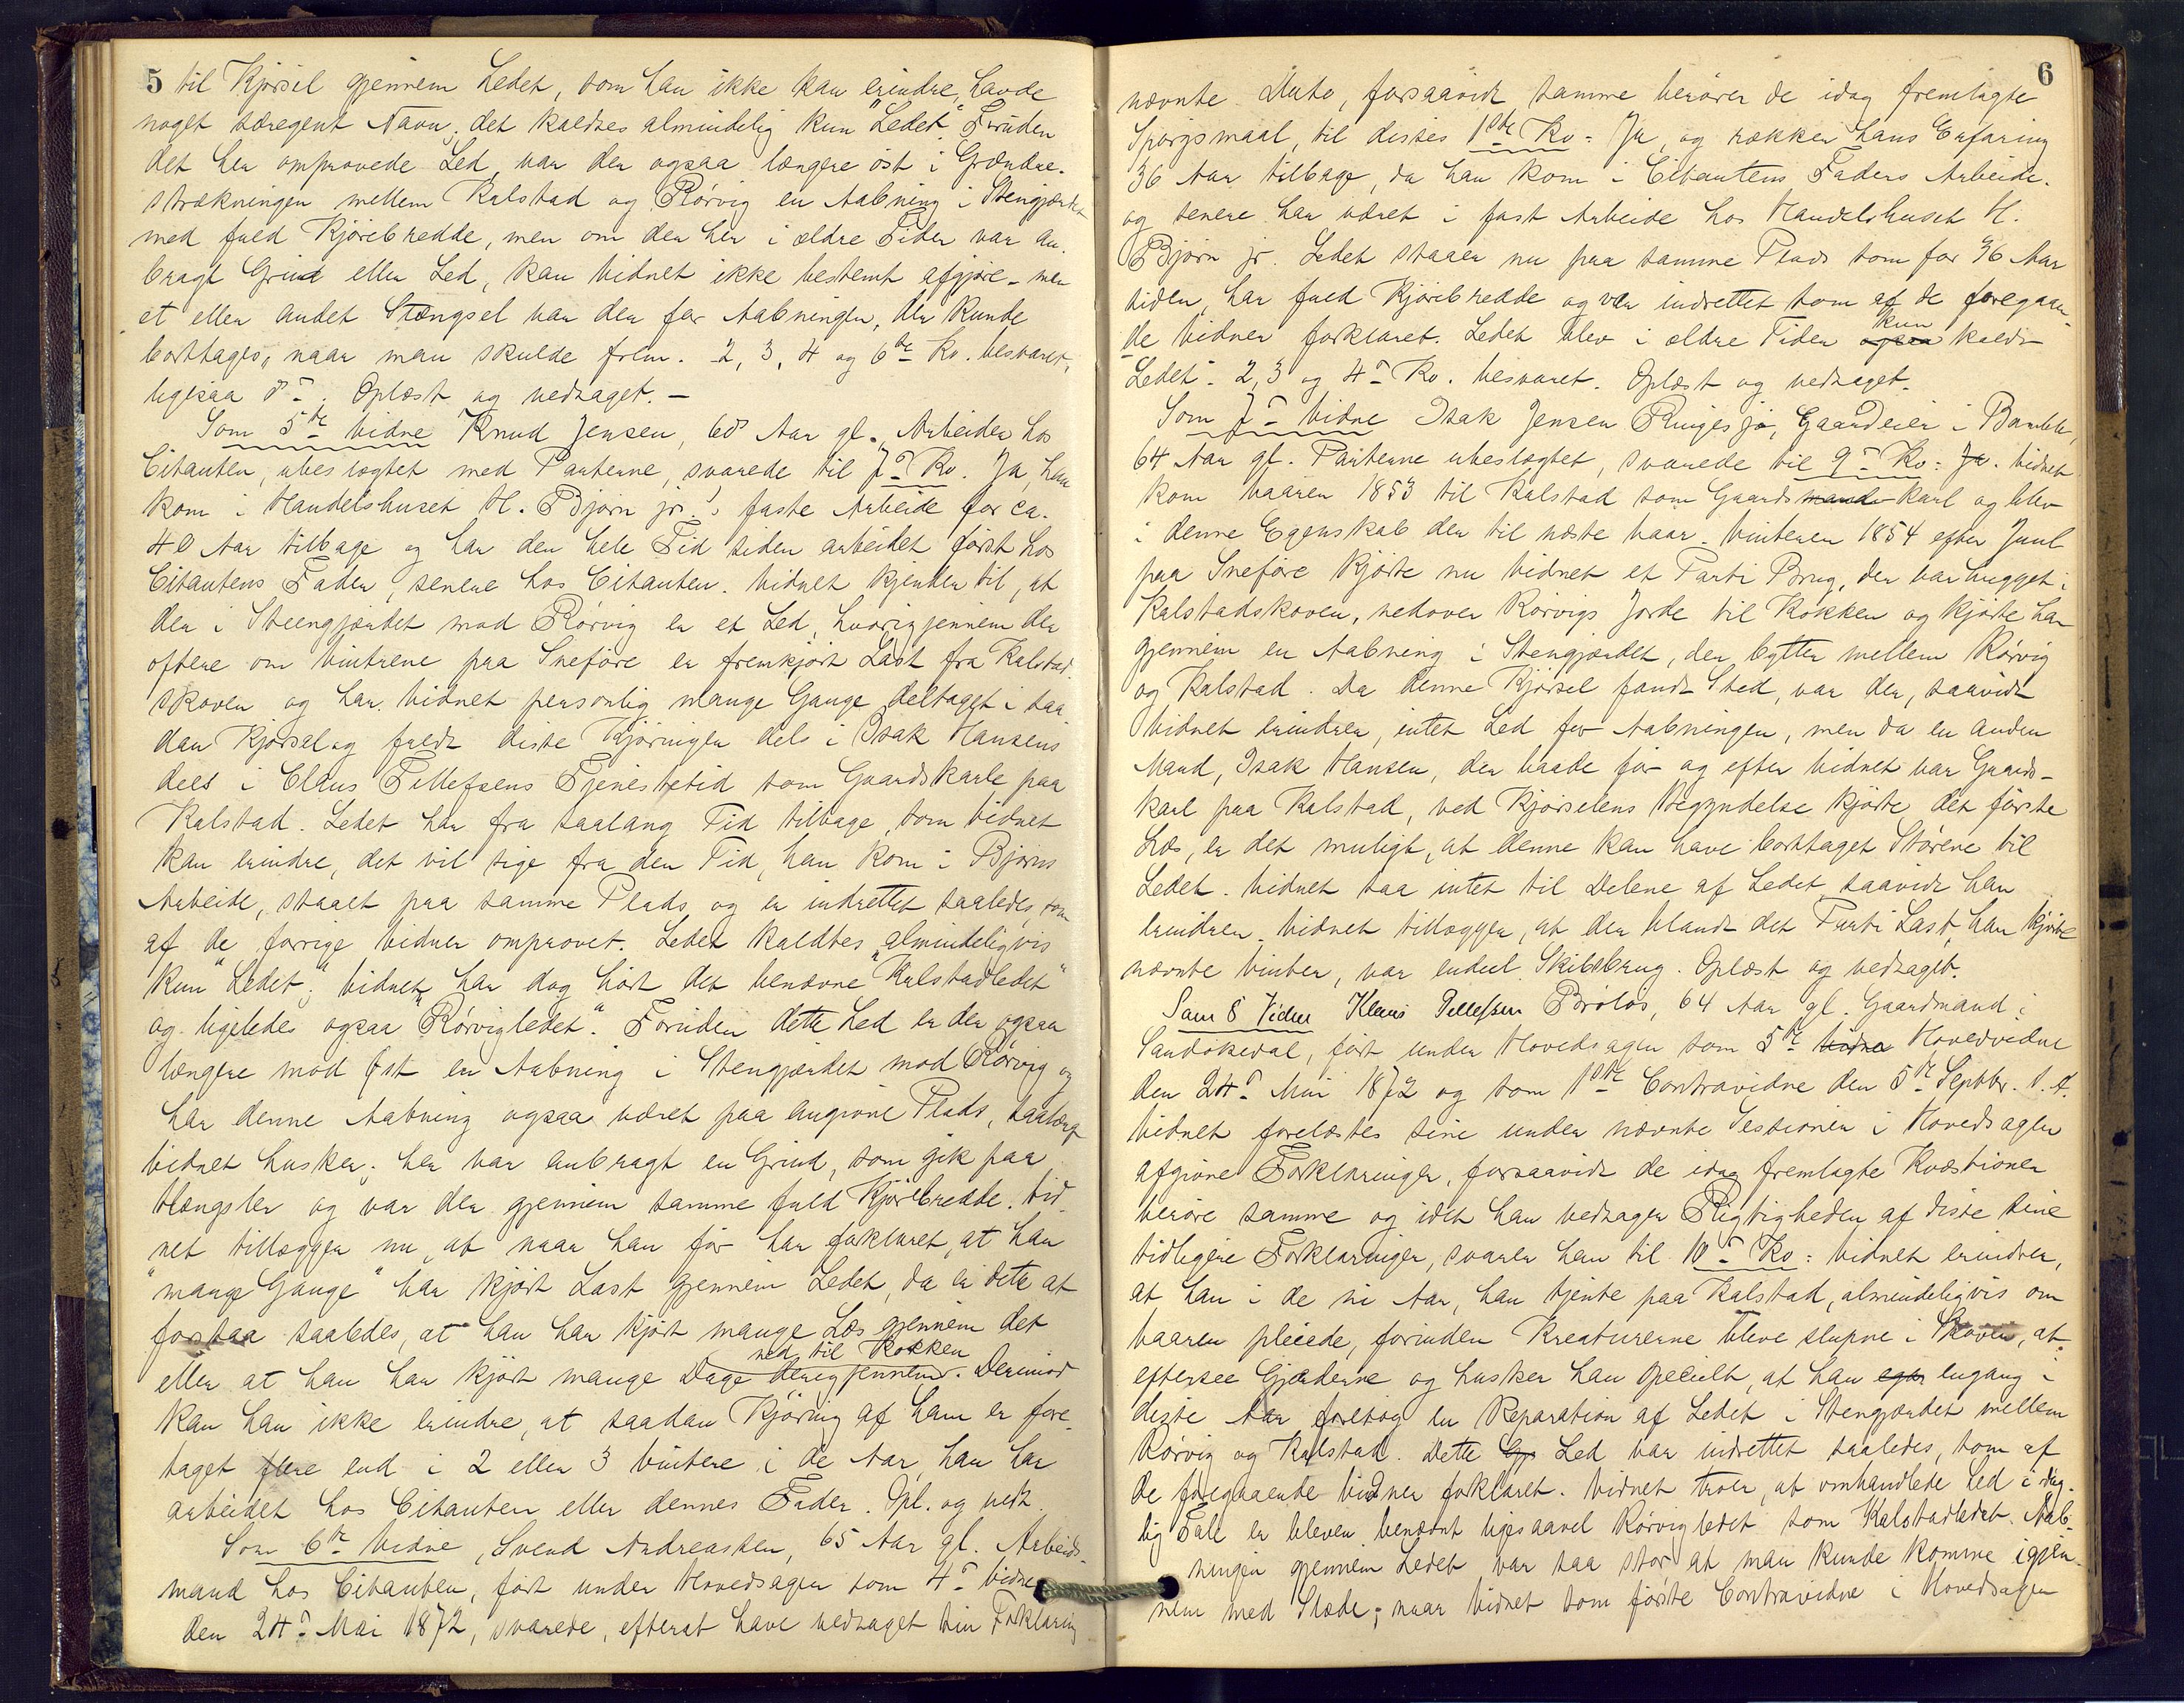 5
til Kjørsel gjennem Ledet, som han ikke kan erindre, havde
noget særegent Navn, det kaldtes almindelig kun "Ledet". Foruden
det her omprovede Led, var der ogsaa længere øst i Grændse-
strækningen mellem Kalstad og Rørvig en Aabning i Stengjærdet
med fuld Kjørebredde, men om der her i ældre Tider var an-
bragt Grind eller Led, kan Vidnet ikke bestemt afgjøre - men
et eller andet Stængsel var der for Aabningen, der kunde
borttages, naar man skulde frem. 2, 3, 4 og 6te Kv. besvaret,
ligesaa 8de. Oplæst og vedtaget. -
Som 5te Vidne Knud Jensen, 68 Aar gl., Arbeider hos
Citanten, ubeslægtet med Parterne, svarede til 7de Kv. Ja, han
kom i Handelshuset H. Bjørn jr.'s faste Arbeide for ca.
40 Aar tilbage og har den hele Tid siden arbeidet først hos
Citantens Fader, senere hos Citanten. Vidnet kjender til, at
der i Steengjærdet mod Rørvig er et Led, hvorigjennem der
oftere om Vintrene paa Sneføre er fremkjørt Last fra Kalstad-
skoven og har Vidnet personlig mange Gange deltaget i saa-
dan Kjørsel og faldt disse Kjøringer dels i Isak Hansens
dels i Claus Tellefsens Tjenestetid som Gaardskarle paa
Kalstad. Ledet har fra saalang Tid tilbage, som Vidnet
kan erindre, det vil sige fra den Tid, han kom i Bjørns
Arbeide, staaet paa samme Plads og er indrettet saaledes, som
af de forrige Vidner omprovet. Ledet kaldtes almindeligvis
kun "Ledet"; Vidnet har dog hørt det benævne "Kalstadledet"
og ligeledes ogsaa "Rørvigledet". Foruden dette Led er der ogsaa
længere mod Øst en Aabning i Stengjærdet mod Rørvig og
har denne Aabning ogsaa været paa angivne Plads, saalænge
Vidnet husker; her var anbragt en Grind, som gik paa
Hængsler og var der gjennem samme fuld Kjørebredde. Vid-
net tillægger nu, at naar han før har forklaret, at han
"mange Gange" har kjørt Last gjennem Ledet, da er dette at
forstaa saaledes, at han har kjørt mange Læs gjennem det
ned til Kokken
eller at han har kjørt mange Dage derigjennem. Derimod
kan han ikke erindre, at saadan Kjøring af ham er fore-
taget flere end i 2 eller 3 Vintere i de Aar, han har
arbeidet hos Citanten eller dennes Fader. Opl. og vedt.
Som 6te Vidne, Svend Andreassen, 65 Aar gl. Arbeids-
mand hos Citanten, ført under Hovedsagen som 4de Vidne
den 24de Mai 1872, svarede, efterat have vedtaget sin Forklaring
6
nævnte Dato, forsaavidt samme berører de idag fremlagte
Spørgsmaal, til disses 1ste Kv: Ja, og rækker hans Erfaring
36 Aar tilbage, da han kom i Citantens Faders Arbeide.
og senere har været i fast Arbeide hos Handelshuset H.
Bjørn jr. Ledet staaer nu paa samme Plads som for 36 Aar
siden, har fuld Kjørebredde og var indrettet som af de foregaaen-
kun
de Vidner forklaret. Ledet blev i ældre Tider ogsaa kaldt
Ledet. 2, 3 og 4de Kv. besvaret. Oplæst og vedtaget.
Som 7de Vidne Isak Jensen Ringesjø, Gaardeier i Bamble,
64 Aar gl. Parterne ubeslægtet, svarede til 9de Kv: Ja. Vidnet
kom Vaaren 1853 til Kalstad som Gaardsmands karl og blev
i denne Egenskab der til næste Vaar. Vinteren 1854 efter Juul
paa Sneføre kjørte nu Vidnet et Parti Brug, der var hugget i
Kalstadskoven, nedover Rørvigs Jorde til Kokken og kjørte han
gjennem en Aabning i Stengjærdet, der bytter mellem Rørvig
og Kalstad. Da denne Kjørsel fandt Sted, var der, saavidt
Vidnet erindrer, intet Led for Aabningen, men da en anden
Mand, Isak Hansen, der baade før og efter Vidnet var Gaards-
karl paa Kalstad, ved Kjørselens Begyndelse kjørte det første
Læs, er det muligt, at denne kan have borttaget Størene til
Ledet. Vidnet saa intet til Delene af Ledet saavidt han
erindrer. Vidnet tillægger, at der blandt det Parti Last, han kjørte
nævnte Vinter, var endeel Skibsbrug. Oplæst og vedtaget.
Som 8 Vidne Klaus Tellefsen Brøløs, 64 Aar gl. Gaardmand i
Sandøkedal, ført under Hovedsagen som 5te Vidne Hovedvidne
den 24de Mai 1872 og som 1ste Contravidne den 5te Septbr. s. A.
Vidnet forelæstes sine under nævnte Sessioner i Hovedsagen
afgivne Forklaringer, forsaavidt de idag fremlagte Kvæstioner
berøre samme og idet han vedtager Rigtigheden af disse sine
tidligere Forklaringer, svarer han til 10de Kv: Vidnet erindrer,
at han i de ni Aar, han tjente paa Kalstad, almindeligvis om
Vaaren pleiede, forinden Kreaturerne bleve slupne i Skoven, at
eftersee Gjærderne og husker han specielt, at han engang i
disse Aar foretog en Reparation af Ledet i Stengjærdet mellem
Rørvig og Kalstad. Dette Led var indrettet saaledes, som af
de foregaaende Vidner forklaret. Vidnet troer, at omhandlede Led i dag-
lig Tale er bleven benævnt ligesaavel Rørvigledet som Kalstadledet. Aab-
ningen gjennem Ledet var saa stor, at man kunde komme igjen-
nem med Slæde; naar Vidnet som første Contravidne i Hovedsagen